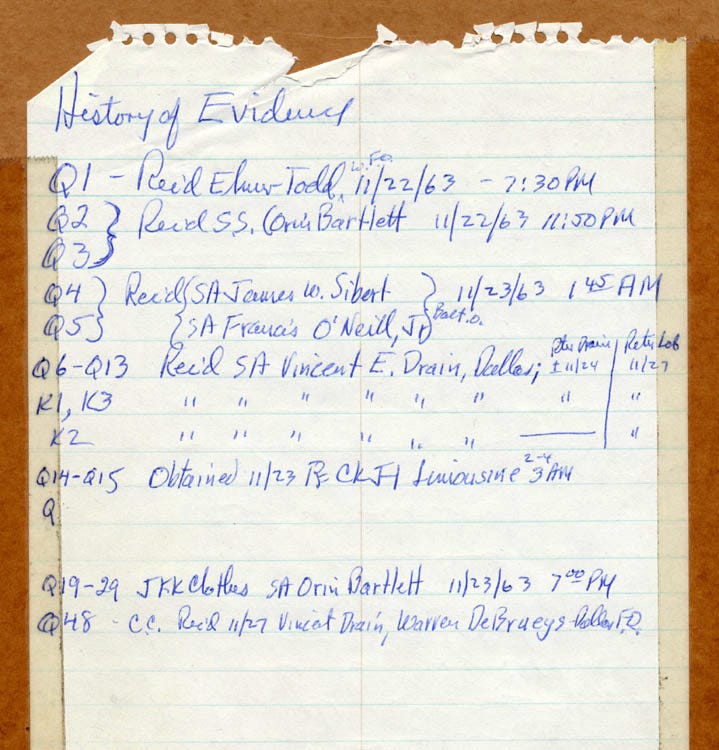 History of Evidence
W.F.O.
Q1 - Rec'd Elmer Todd, 11/22/63 - 7:30 PM
Q2 } Rec'd S.S. Orin Bartlett 11/22/63 11:50 PM
Q3
Q4 } Rec'd { SA James W. Sibert } 11/23/63 1 45 AM
Q5 } { SA Francis O'Neill, Jr } Balt.O.
Q6-Q13 Rec'd SA Vincent E. Drain, Dallas; Drain ± 11/24 | Retn Lab 11/27
K1, K3 " " " " " " " | "
K2 " " " " " " —— | "
Q14-Q15 Obtained 11/23 Limousine 2-4 3 AM
Q
Q19-29 JFK Clothes SA Orin Bartlett 11/23/63 7 00 PM
Q48 - C.C. Rec'd 11/27 Vincent Drain, Warren DeBrueys - Dallas F.O.